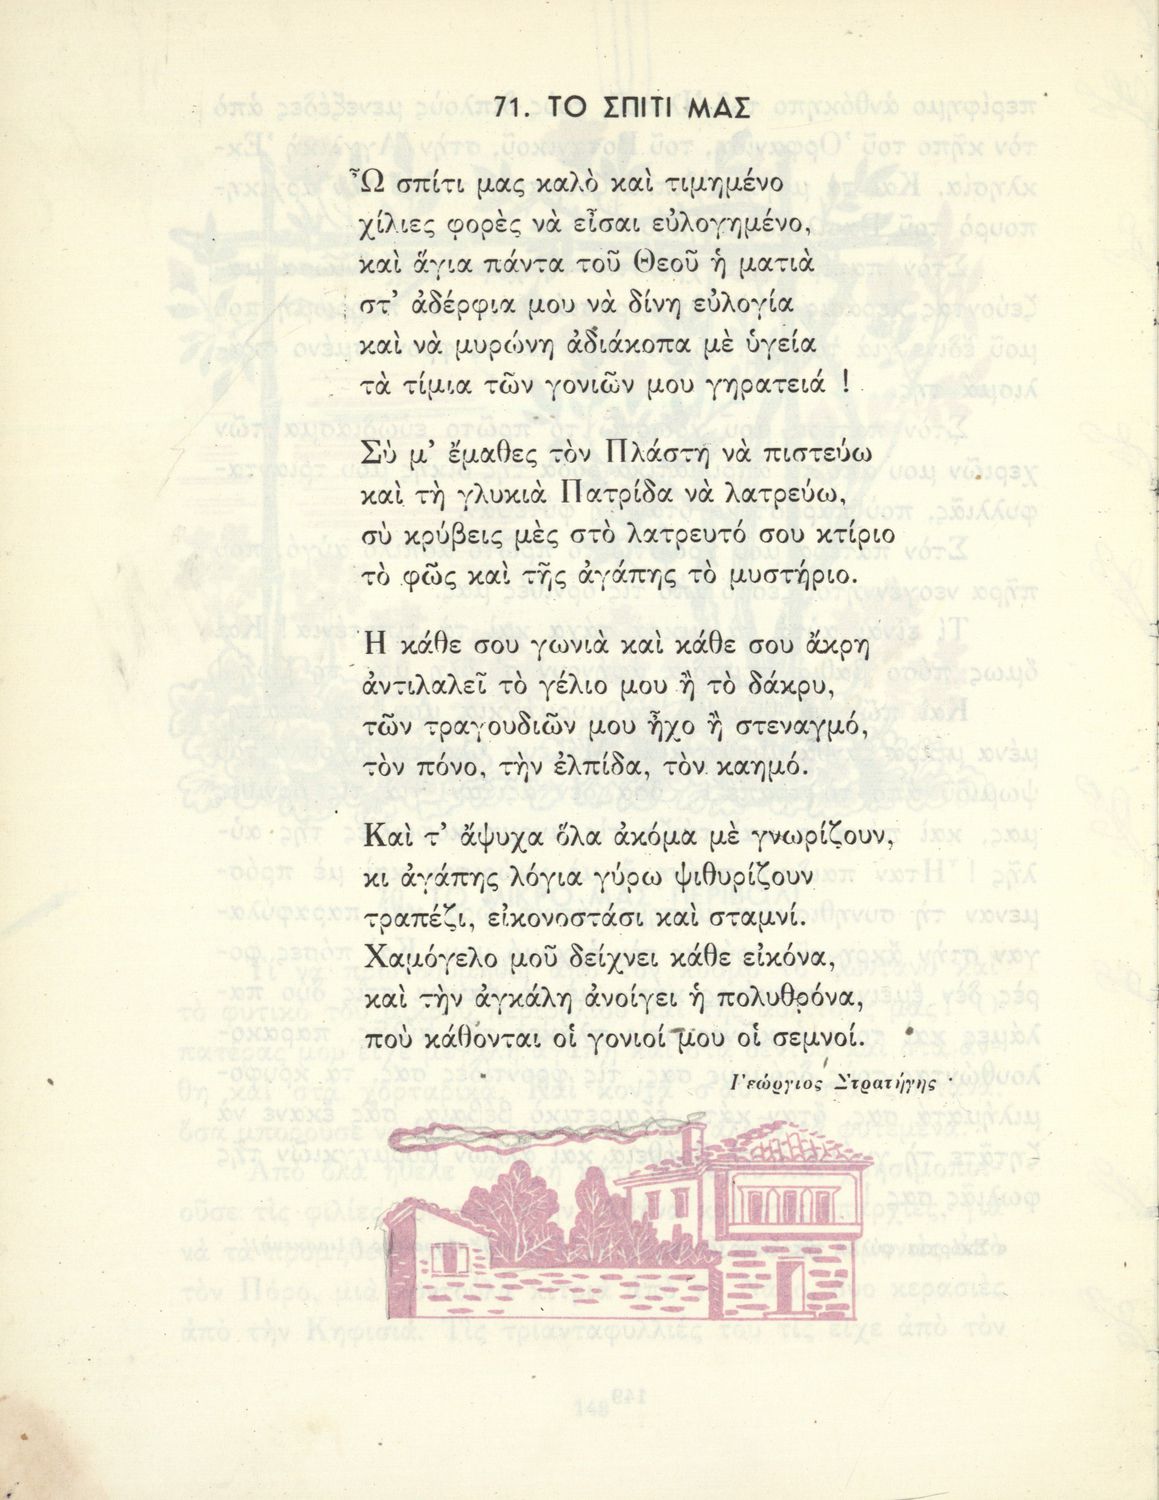 71. ΤΟ ΣΠΙΤΙ ΜΑΣ
Ὦ σπίτι μας καλὸ καὶ τιμημένο
χίλιες φορὲς νὰ εἶσαι εὐλογημένο,
καὶ ἅγια πάντα τοῦ Θεοῦ ἡ ματιὰ
στ' ἀδέρφια μου νὰ δίνη εὐλογία
καὶ νὰ μυρώνη ἀδιάκοπα μὲ ὑγεία
τὰ τίμια τῶν γονιῶν μου γηρατειά !
Σὺ μ' ἔμαθες τὸν Πλάστη νὰ πιστεύω
καὶ τὴ γλυκιὰ Πατρίδα νὰ λατρεύω,
σὺ κρύβεις μὲς στὸ λατρευτό σου κτίριο
τὸ φῶς καὶ τῆς ἀγάπης τὸ μυστήριο.
Ἡ κάθε σου γωνιὰ καὶ κάθε σου ἄκρη
ἀντιλαλεῖ τὸ γέλιο μου ἢ τὸ δάκρυ,
τῶν τραγουδιῶν μου ἦχο ἢ στεναγμό,
τὸν πόνο, τὴν ἐλπίδα, τὸν καημό.
Καὶ τ' ἄψυχα ὅλα ἀκόμα μὲ γνωρίζουν,
κι ἀγάπης λόγια γύρω ψιθυρίζουν
τραπέζι, εἰκονοστάσι καὶ σταμνί.
Χαμόγελο μοῦ δείχνει κάθε εἰκόνα,
καὶ τὴν ἀγκάλη ἀνοίγει ἡ πολυθρόνα,
ποὺ κάθονται οἱ γονιοί μου οἱ σεμνοί.
Γεώργιος Στρατήγης
148